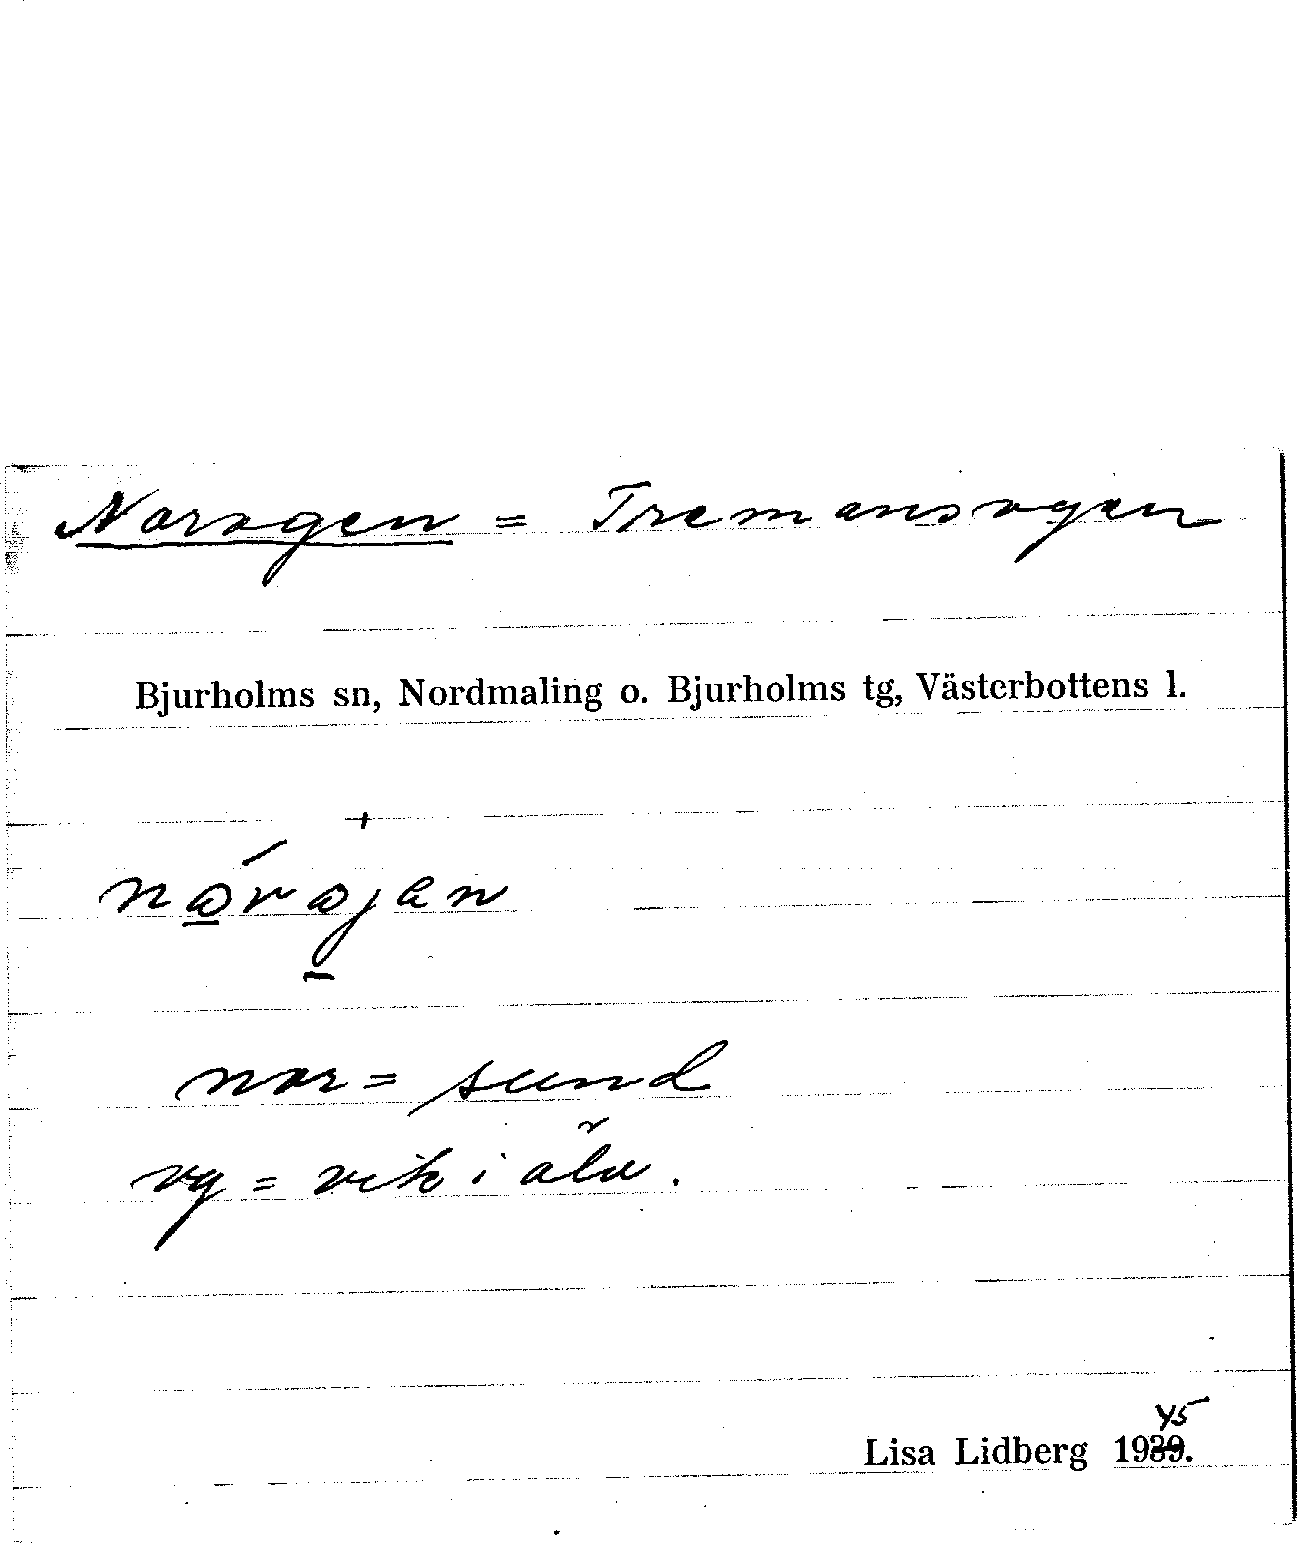 Norogen = Tremansogen
Bjurholms sn, Nordmaling o. Bjurholms tg, Västerbottens l.
nor = sund
og = vik i älv.
45
Lisa Lidberg 1939.